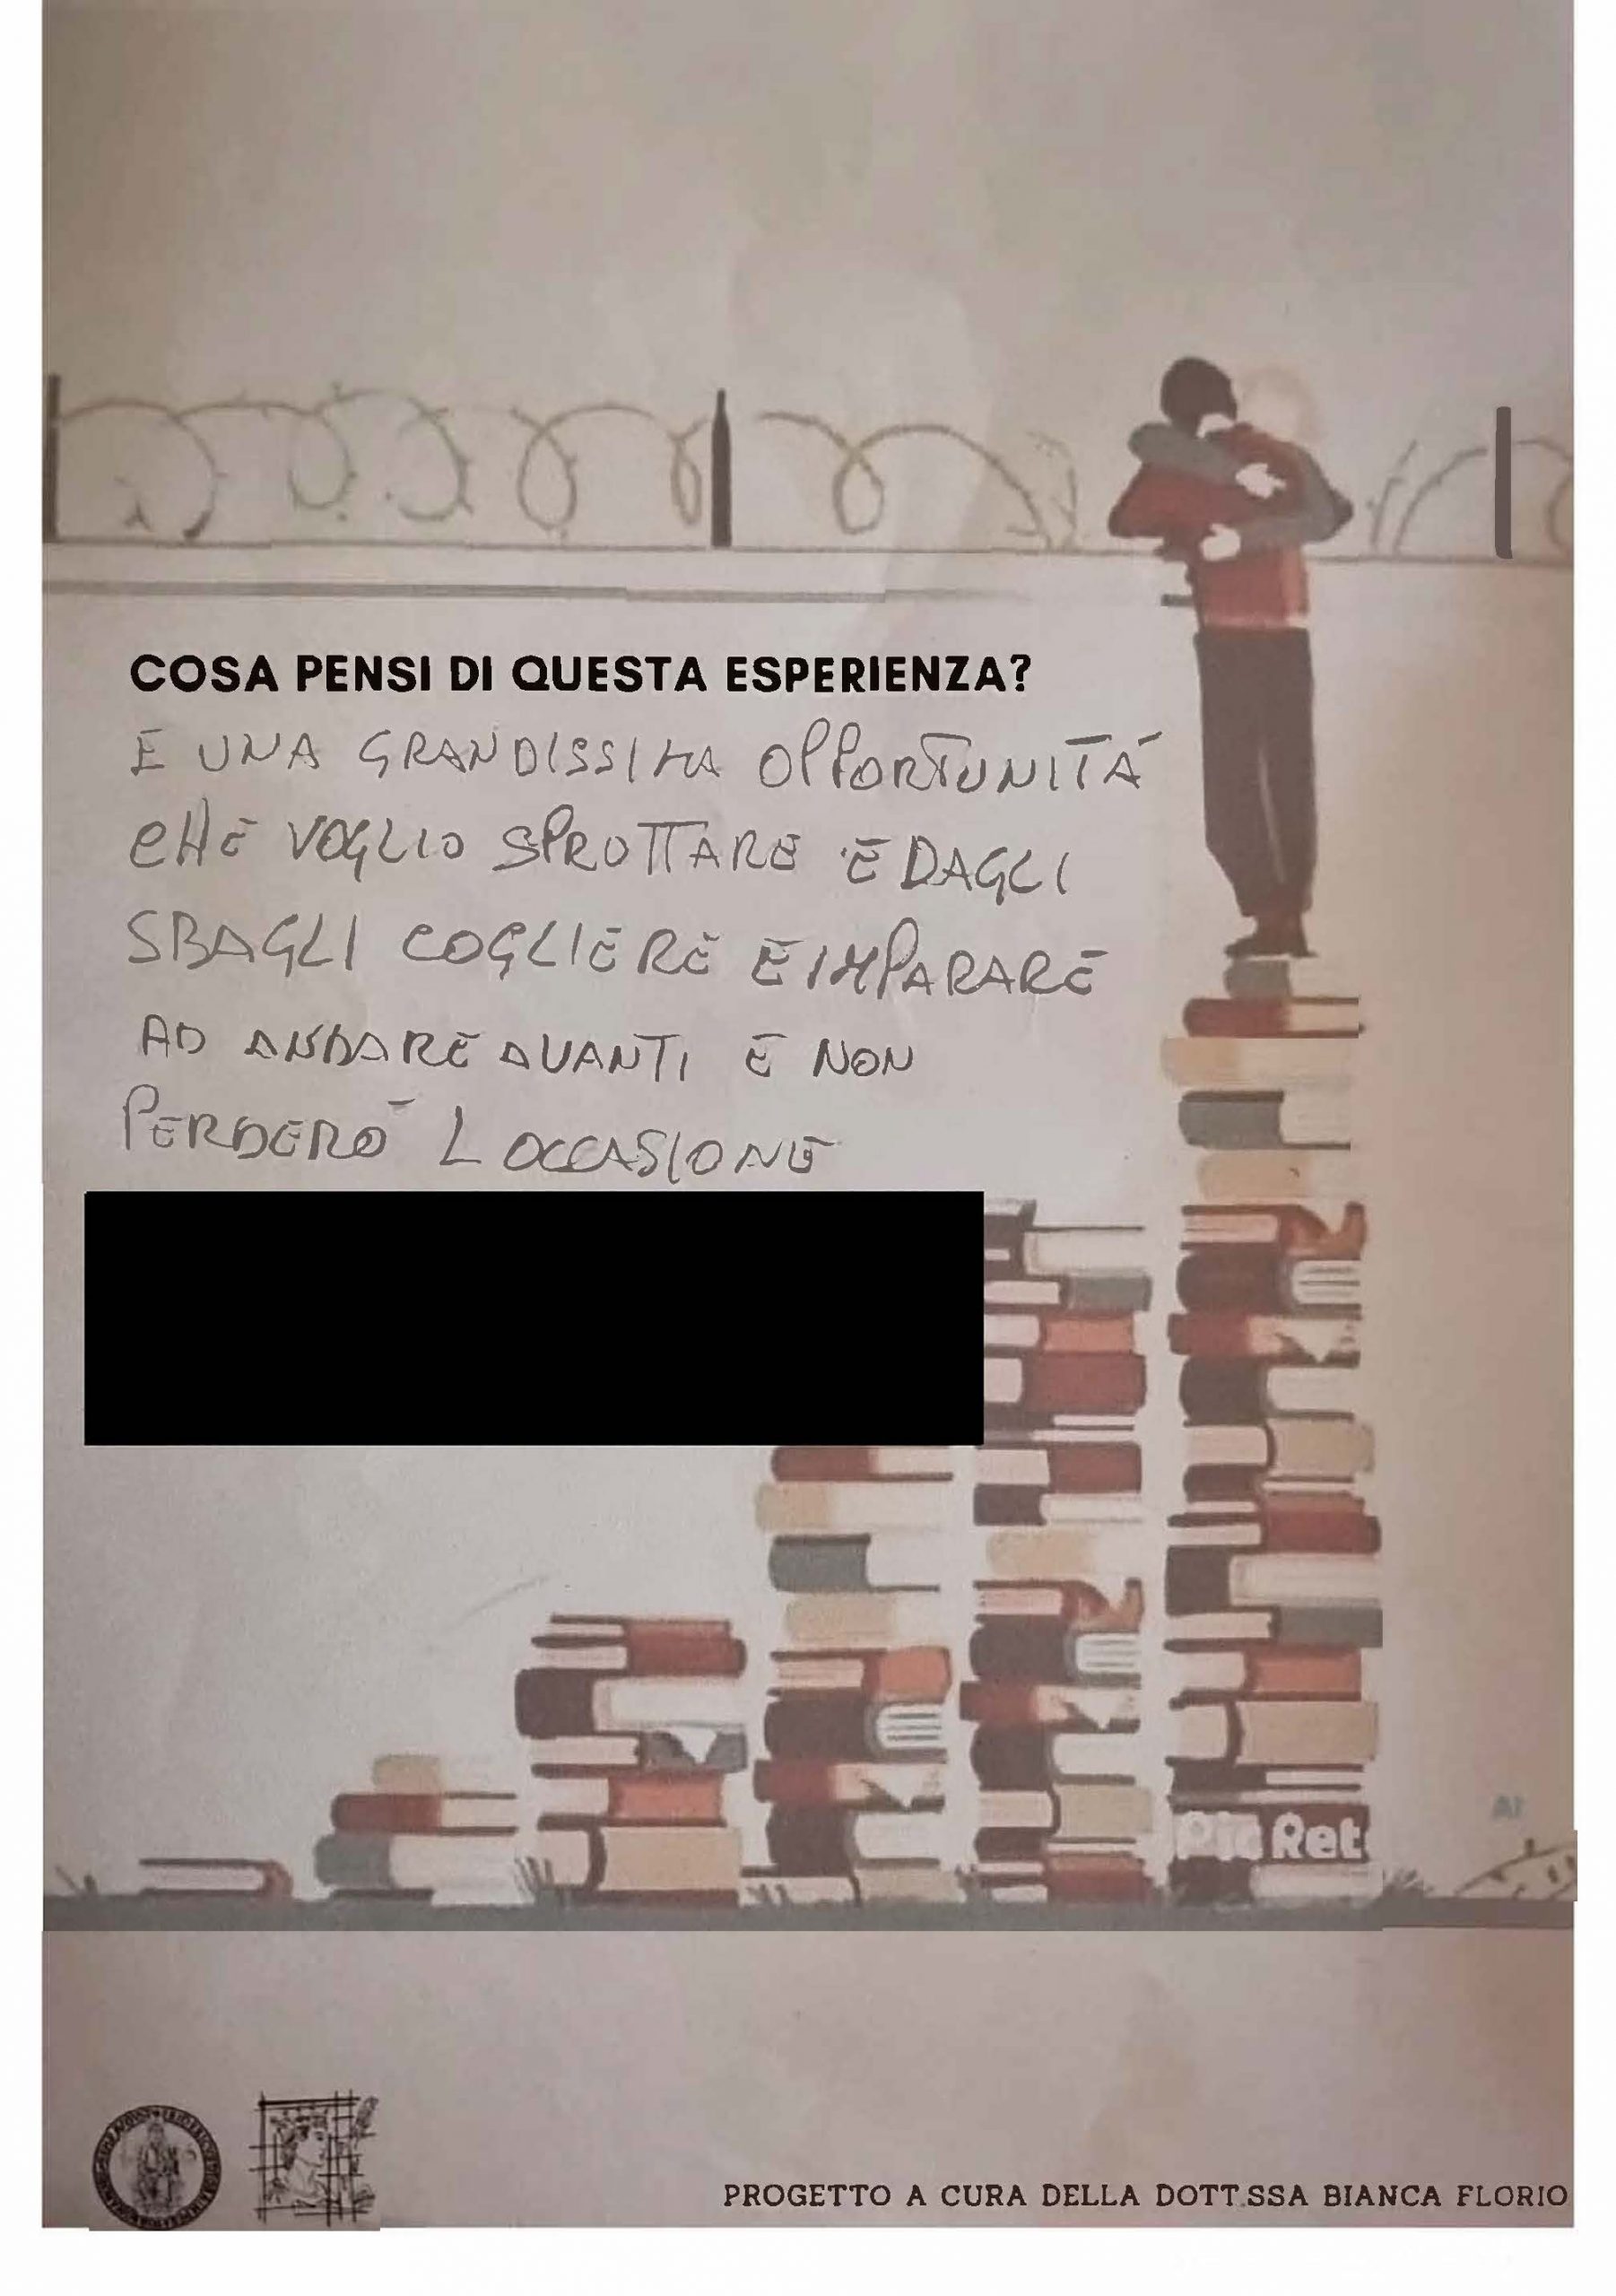 COSA PENSI DI QUESTA ESPERIENZA?
E UNA GRANDISSIMA OPPORTUNITÁ
CHE VOGLIO SPROTTARE E DAGLI
SBAGLI COGLIERE E IMPARARE
AD ANDARE AVANTI E NON
PERDERÓ L OCCASIONE
Pic Ret
AI
PROGETTO A CURA DELLA DOTT.SSA BIANCA FLORIO